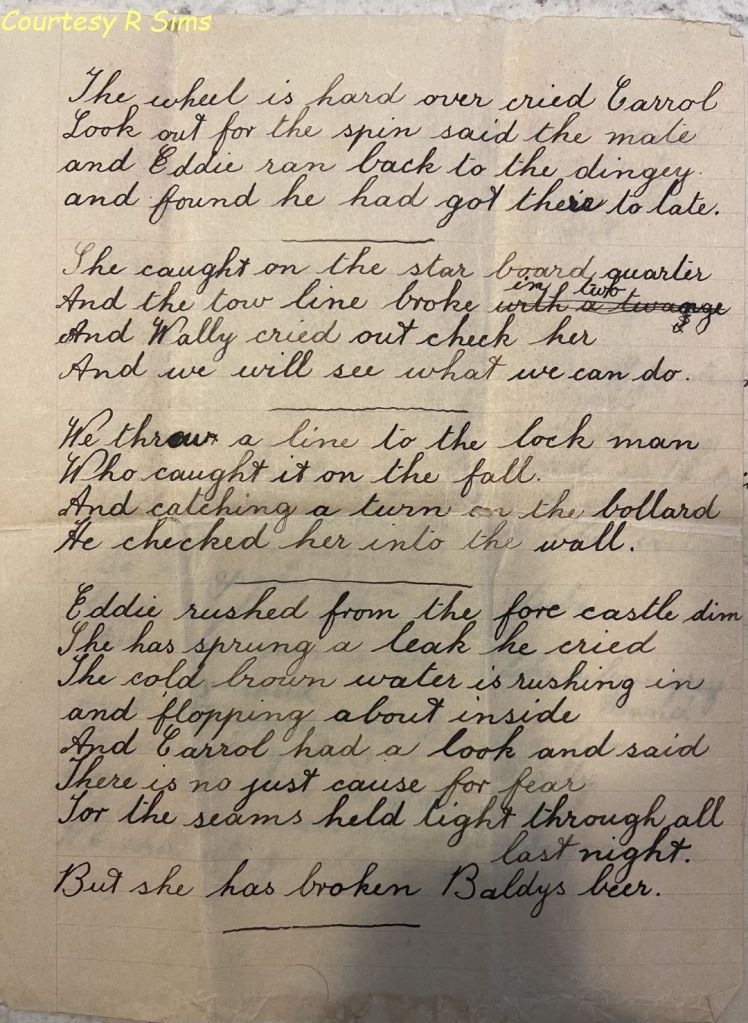 Courtesy R Sims
The wheel is hard over cried Carrol
Look out for the spin said the mate
and Eddie ran back to the dingey.
and found he had got their to late.
She caught on the star board quarter
And the tow line broke in two with a twange
And Wally cried out check her
And we will see what we can do.
We throw a line to the lock man
Who caught it on the fall.
And catching a turn on the bollard
He checked her into the wall.
Eddie rushed from the fore castle dim
She has sprung a leak he cried
The cold brown water is rushing in
and flopping about inside
And Carrol had a look and said
There is no just cause for fear
For the seams held tight through all
last night.
But she has broken Baldys beer.